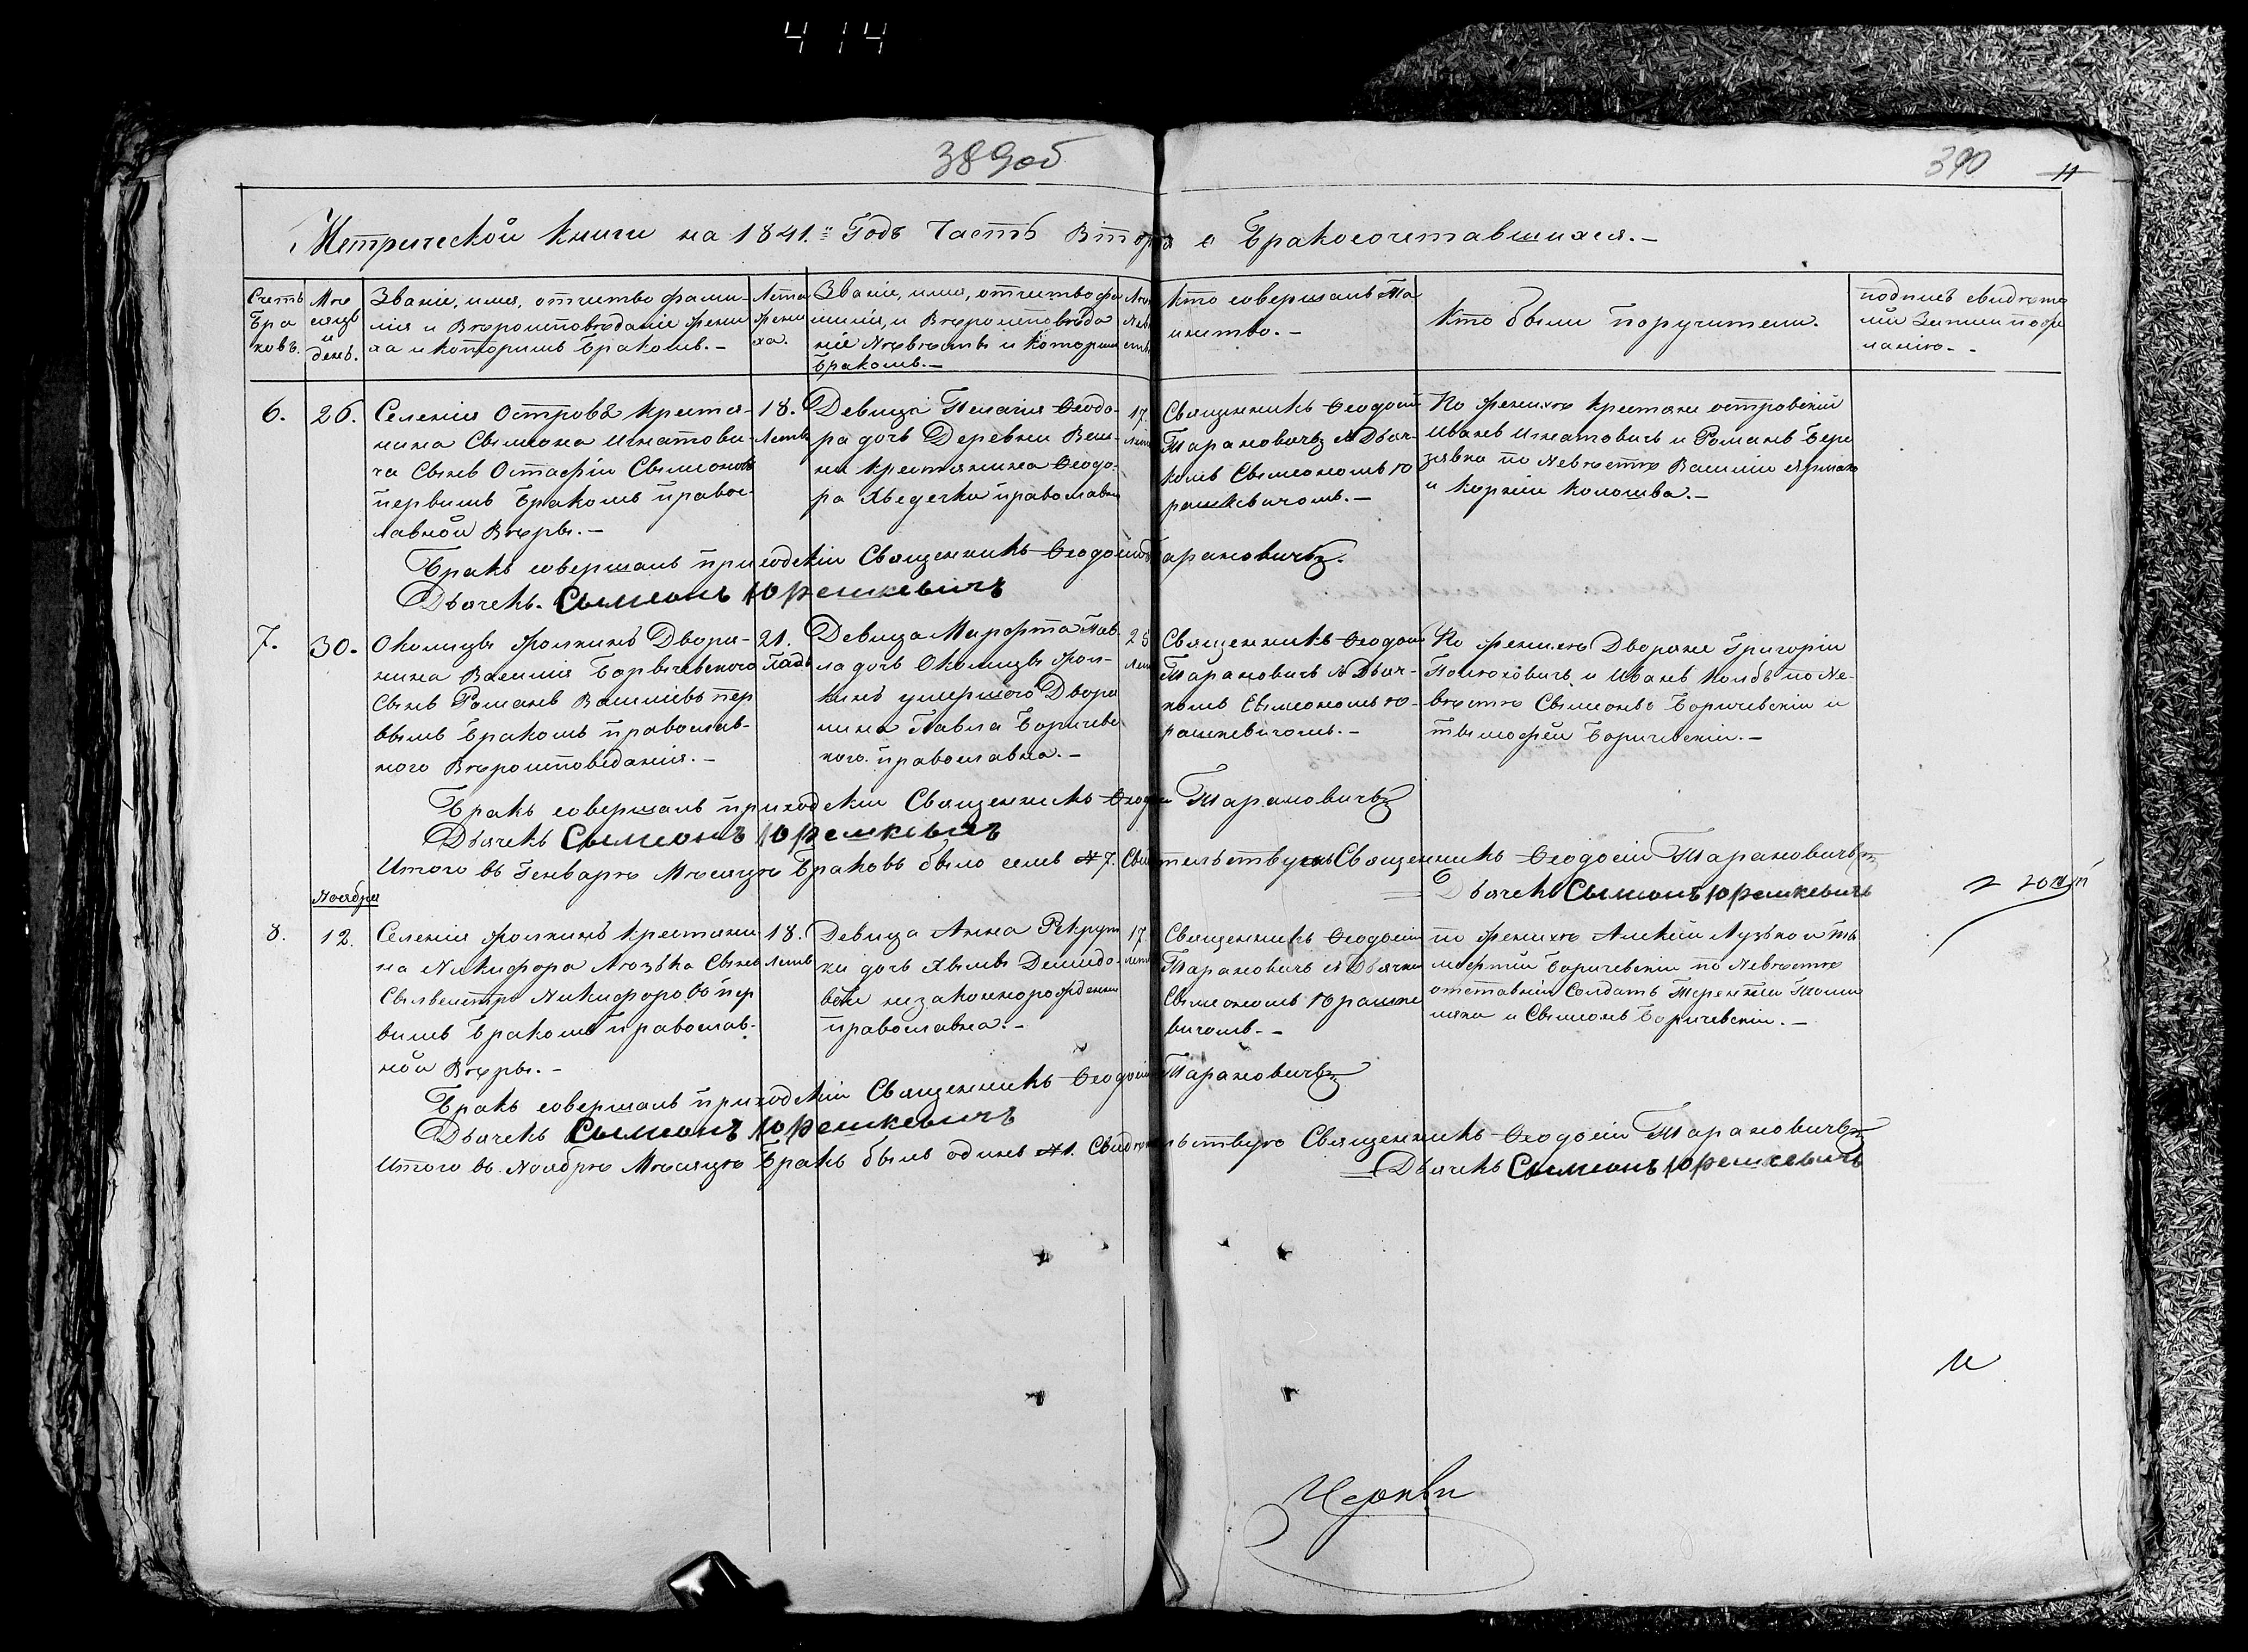 414
389об
390 11
Метрической книги на 1841.й Годъ Часть Вторая о Бракосочетавшихся.—
Счетъ
Бра
ковъ.
Мѣ
сяцъ
и
день.
Званіе, имя, отчитво фами-
лія и Вѣроисповѣданіе жени
ха и которимъ Бракомъ.—
Лета
жени
ха.
Званіе, имя, отчитво фа
милія, и Вѣроисповѣда
ніе Невѣсты и которим
Бракомъ.—
Кто совершалъ Та
инство.—
Кто были Поручители.
подписъ свидѣте
лй Записи по же
ланію.-
6.
26.
Селенія Островъ крестя-
нина Сымеона Игнатови-
ча Сынъ Остафій Сымеоновъ
первимъ Бракомъ правос-
лавной Вѣры.—
18.
Летъ
Девица Пелагія Ѳеодо-
ра дочъ Деревни
крестянина Ѳеодо-
ра Хведечка православн
17.
Лет
Священникъ Ѳеодосій
Тарановичъ з Дяч-
комъ Сымеономъ Ю
рашкевичомъ.—
По женихѣ крестяне островскіи
Иванъ Игнатовичъ и Романъ Бере
зявка по Невѣстѣ Василій
и Корній Колошва.—
Бракъ совершалъ приходскій Священникъ Ѳеодосій Тарановичъ.
Дьячекъ. Сымеонъ Юрешкевичъ
7.
30.
Околицы Фолкинъ Дворя-
нина Василія Борычевского
Сынъ Романъ Василіевъ пер
вымъ Бракомъ православ-
ного Вѣроисповеданія.—
21.
Годъ
Девица Марфта Пав-
ла дочъ Околицы Фол-
кинъ умершого Дворя
нина Павла Боричевс
кого. православна.—
25
Лет
Священникъ Ѳеодосій
Тарановичъ з Дяч-
комъ Сымеономъ Ю-
рашкевичомъ.—
По женихѣ Дворяне Григорій
и Иванъ Колбъ по Не-
вѣстѣ Сымеонъ Боричевскіи и
тымофей Боричевскіи.—
Бракъ совершалъ приходскій Священникъ Ѳеодосій Тарановичъ
Дьячекъ Сымеонъ Юрешкевичъ
Итого въ Генварѣ Мѣсяцѣ Браковъ было семъ № 7. Свидѣтельствуемъ Священникъ Ѳеодосій Тарановичъ
= Дьячекъ Сымеонъ Юрешкевичъ
Ноября
8.
12.
Селенія Фолкинъ крестяни
на Никифора Лозѣка Сынъ
Сылвестръ Никифоровъ пер
вимъ Бракомъ православ-
ной Вѣры.—
18.
Летъ
Девица Анна Рекрут
ки дочъ Хвымы Демидо-
вой незаконнорожденна
православна.—
17.
Лет
Священникъ Ѳеодосій
Тарановичъ з Дьячком
Сымеономъ Юрашке
вичомъ.—
по женихѣ Алексій Лузько и ты
мофтій Боричевскіи по Невѣстѣ
отставній Солдатъ Терентій
и Сымеонъ Боричевскіи.—
Бракъ совершалъ приходскій Священникъ Ѳеодосій Тарановичъ
Дьячекъ Сымеонъ Юрешкевичъ
Итого въ Ноябрѣ Мѣсяцѣ Бракъ былъ одинъ №1. Свидѣтельствую Священникъ Ѳеодосій Тарановичъ
= Дьячекъ Сымеонъ Юрешкевичъ
Церкви